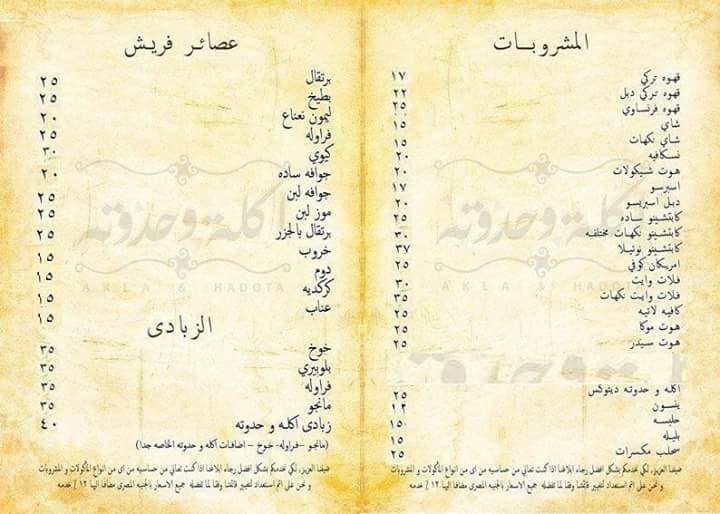 المشروبات
قهوه تركي ١٧
قهوه تركي دبل ٢٢
قهوه فرنساوي ٢٥
شاي ١٥
شاي نكهات ١٥
نسكافيه ٢٠
هوت شيكولات ٢٠
اسبرسو ١٧
دبل اسبريسو ٢٠
كابتشينو ساده ٢٥
كابتشينو نكهات مختلفه ٣٠
كابتشينو نوتيلا ٣٧
امريكان كوفي ٢٥
فلات وايت ٣٠
فلات وايت نكهات ٣٥
كافيه لاتيه ٢٥
هوت موكا ٢٥
هوت سيدر ٢٥
اكله و حدوته ديتوكس ٢٥
ينسون ١٢
حلبسه ١٥
بليله ١٥
سحلب مكسرات ٢٥
ضيفنا العزيز، لكي نخدمكم بشكل افضل رجاء ابلاغنا اذا كنت تعاني من حساسيه من اى من انواع المأكولات و المشروبات
و نحن على اتم استعداد لتغيير قائمتنا وفقا لما تفضله جميع الاسعار بالجنيه المصرى مضافا اليها ١٢ ٪ خدمه
عصائر فريش
برتقال ٢٥
بطيخ ٢٥
ليمون نعناع ٢٠
فراوله ٢٥
كيوي ٣٠
جوافه ساده ٢٠
جوافه لبن ٢٥
موز لبن ٢٥
برتقال بالجزر ٢٥
خروب ١٥
دوم ١٥
كركديه ١٥
عناب ١٥
الزبادى
خوخ ٣٥
بلوبيري ٣٥
فراوله ٣٥
مانجو ٣٥
زبادى اكله و حدوته ٤٠
(مانجو –فراوله- خوخ – اضافات اكله و حدوته الخاصه جدا)
ضيفنا العزيز، لكي نخدمكم بشكل افضل رجاء ابلاغنا اذا كنت تعاني من حساسيه من اى من انواع المأكولات و المشروبات
و نحن على اتم استعداد لتغيير قائمتنا وفقا لما تفضله جميع الاسعار بالجنيه المصرى مضافا اليها ١٢ ٪ خدمه
أكلة وحدوته
AKLA & HADOTA
أكلة وحدوته
AKLA & HADOTA